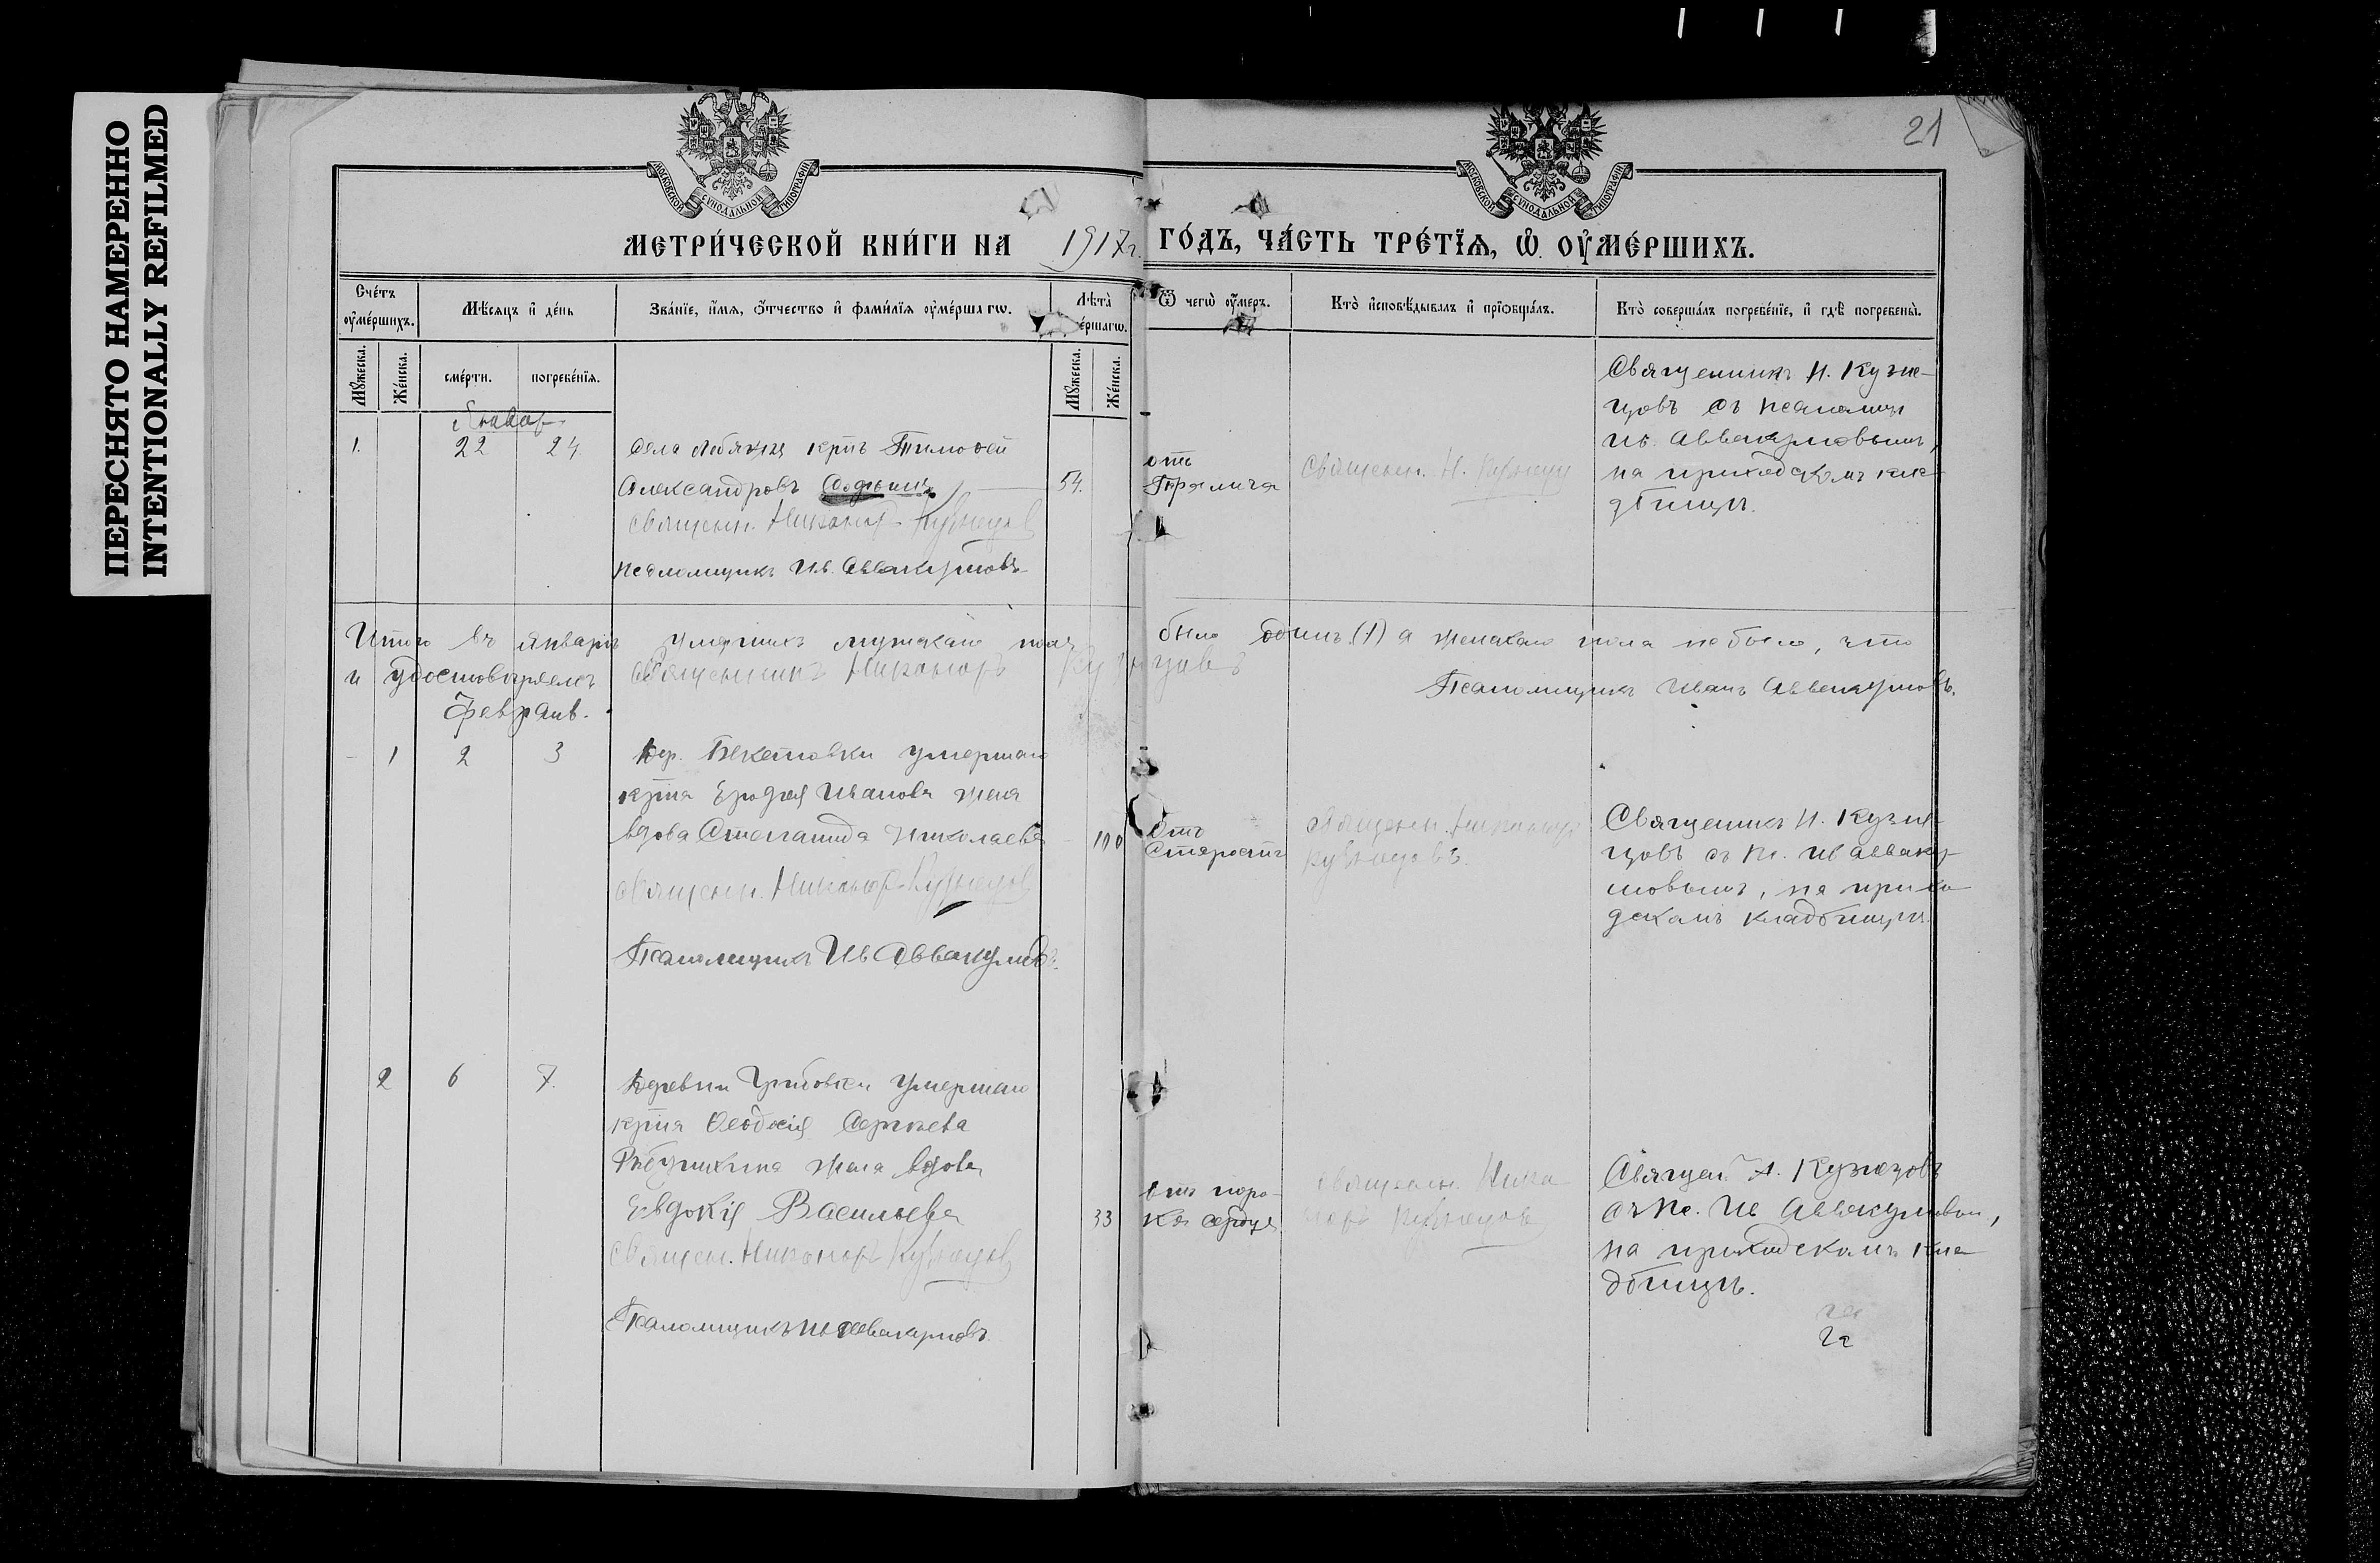 ПЕРЕСНЯТО НАМЕРЕННО
INTENTIONALLY REFILMED
21
МОСКОВСКОЙ СѴНОДАЛЬНОЙ ТИПОГРАФІИ
МОСКОВСКОЙ СѴНОДАЛЬНОЙ ТИПОГРАФІИ
МЕТРИ́ЧЕСКОЙ КНИ́ГИ НА 1917 г. ГО́ДЪ, ЧА́СТЬ ТРЕ́ТЇѦ, Ѽ ОУ҆МЕ́РШИХЪ.
Сче́тъ оу҆ме́ршихъ.
Мѣ́сѧцъ и҆ де́нь
Зва́нїе, и҆́мѧ, ѻ҆́тчество и҆ фами́лїѧ оу҆ме́ршагѡ.
Лѣ́та ме́ршагѡ.
Ѿ чегѡ̀ оу҆́меръ.
Кто̀ и҆сповѣ́дывалъ и҆ прїѡбща́лъ.
Кто̀ соверша́лъ погребе́нїе, и҆ гдѣ̀ погребены̀.
Мꙋ́жеска.
Же́нска.
сме́рти.
погребе́нїѧ.
Мꙋ́жеска.
Же́нска.
Январ
1.
22
24
Села крнъ Тимофей
Александровъ
священн. Никаноръ Кузнецов
псаломщикъ Ив. Аввакумовъ
54.
отъ
Паралича
Священн. Н. Кузнецов
Священникъ Н. Кузне-
цовъ съ псаломщ
Ив. Аввакумовымъ,
на приходскомъ кла-
дбищѣ.
Итого въ январѣ умершихъ мужскаго пола было одинъ (1) а женскаго пола не было, что
и удостовѣряемъ Священникъ Никаноръ Кузнецовъ
Псаломщикъ Иванъ Аввакумовъ.
Феврали.
1
2
3
Дер. Бекетовки умершаго
крна Ивановa жена
вдова Степанида Николаева
священн. Никаноръ Кузнецов
Псаломщикъ Ив Аввакумовъ.
100
Отъ
Старости
священн. Никаноръ
Кузнецовъ.
Священикъ Н. Кузне-
цовъ съ пс. Ив Авваку-
мовымъ, на прихо
дскомъ кладбищѣ.
2
6
7.
Деревни Грибовки умершаго
крна Ѳеодосія Сергѣева
жена вдова
Евдокія Васильева
Священ. Никаноръ Кузнецов
Псаломщикъ Ив Аввакумовъ.
33
отъ поро-
ка сердца
священн. Ника
норъ Кузнецов
Священ. Н. Кузнецовъ
съ пс. Ив Аввакумовым,
на приходскомъ кла
дбищѣ.